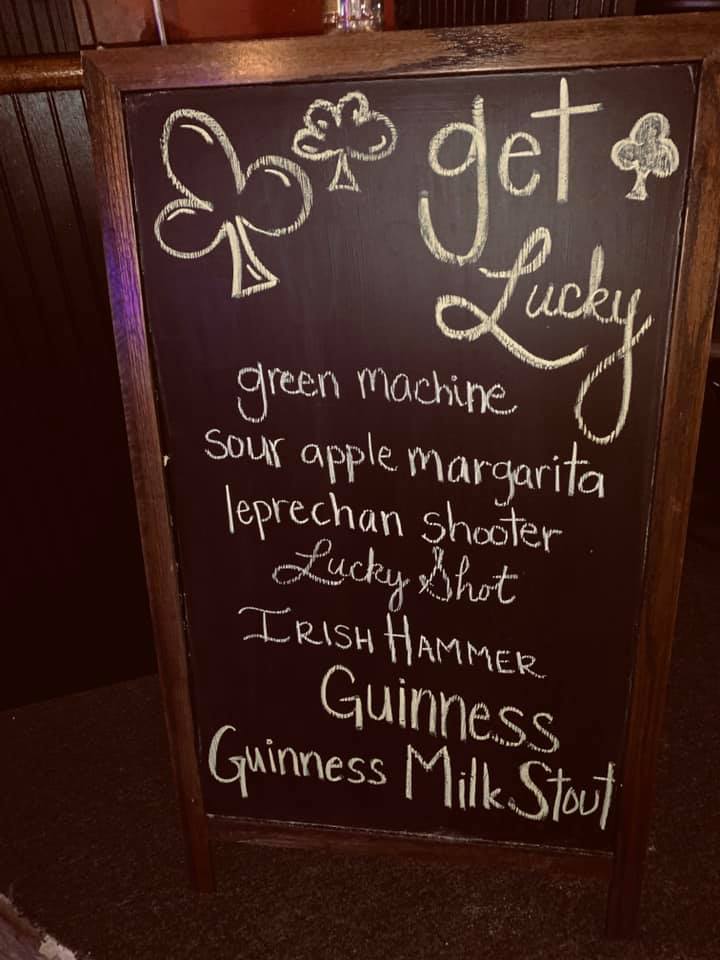 get
Lucky
green machine
sour apple margarita
leprechan shooter
Lucky Shot
IRISH HAMMER
Guinness
Guinness Milk Stout